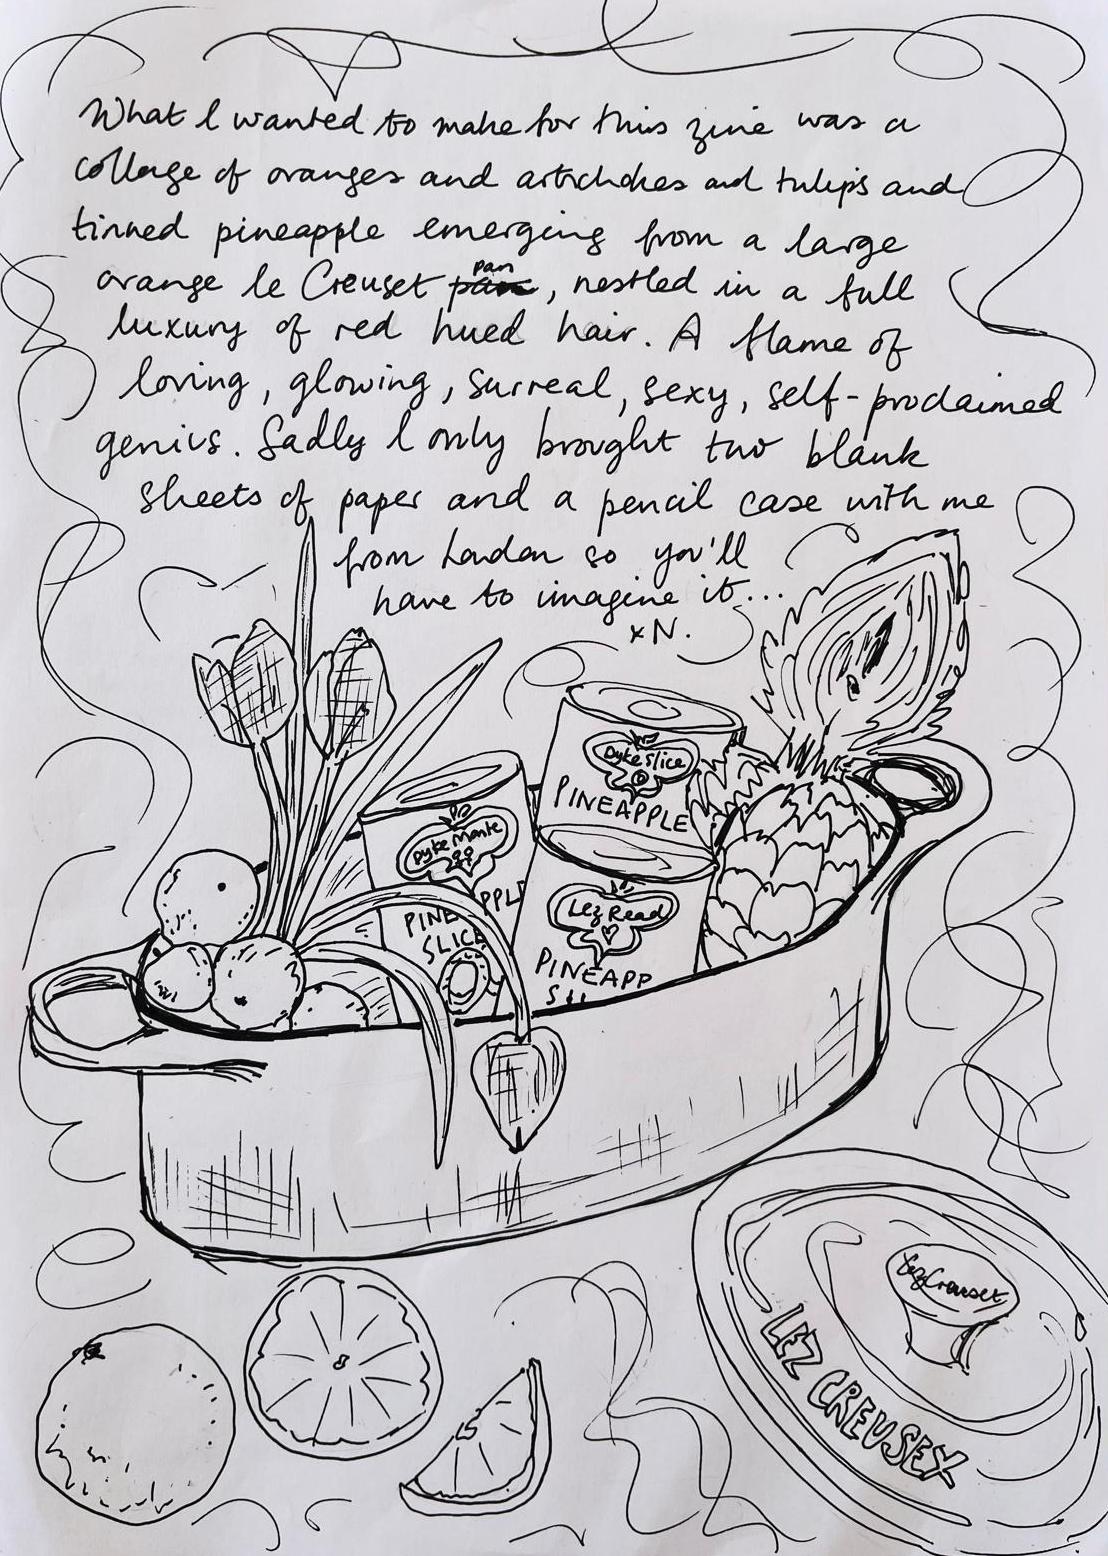 What I wanted to make for this zine was a
collage of oranges and artichokes and tulips and
tinned pineapple emerging from a large
orange le Creuset pan, nestled in a full
luxury of red hued hair. A flame of
loving, glowing, surreal, sexy, self-proclaimed
genius. Sadly I only brought two blank
sheets of paper and a pencil case with me
from London so you'll
have to imagine it...
xN.
Dyke Slice
PINEAPPLE
Dyke Monte
PINE PPLE
SLICE
Lez Read
PINEAPP
SLI
Lez Creuset
LEZ CREUSEX